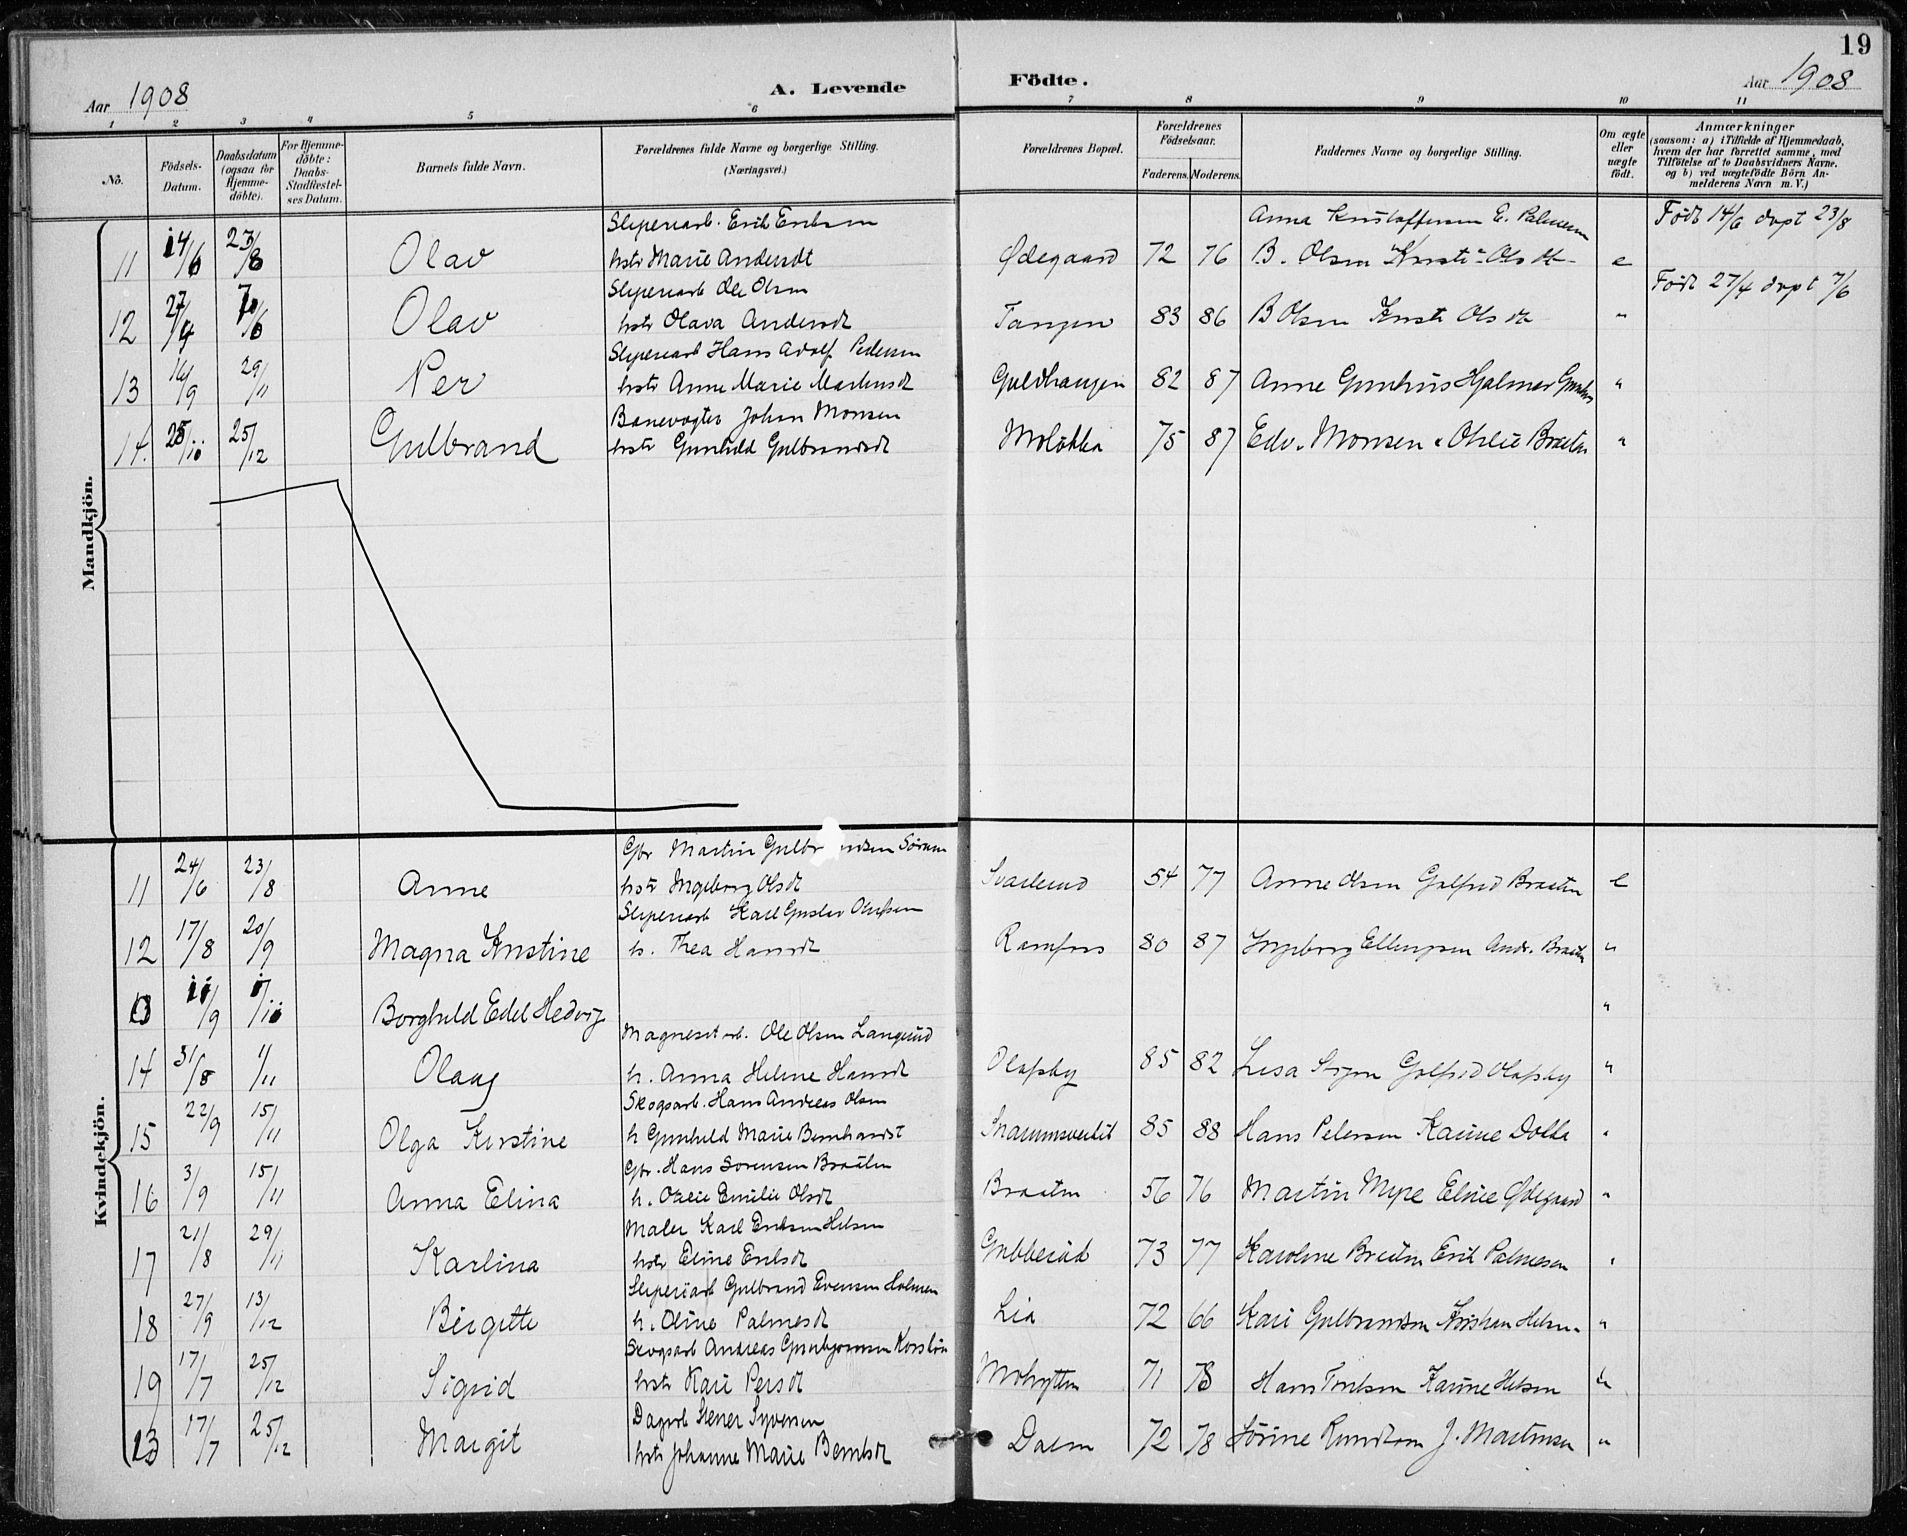 19
Aar 1908 A. Levende Födte. Aar 1908
1 2 3 4 5 6 7 8 9 10 11
No. Födsels-Datum. Daabsdatum (ogsaa for Hjemme-döbte). For Hjemme-döbte: Daabs-Stadfæstel-ses Datum. Barnets fulde Navn. Forældrenes fulde Navne og borgerlige Stilling. (Næringsvei.) Forældrenes Bopæl. Forældrenes Födselsaar. Faderens. Moderens. Faddernes Navne og borgerlige Stilling. Om ægte eller uægte födt. Anmærkninger (saasom: a) i Tilfælde af Hjemmedaab, hvem der har forrettet samme, med Tilföielse af to Daabsvidners Navne, og b) ved uægtefödte Börn An-melderens Navn m. V.)
Mandkjön.
Sliperiarb. Erik Eriksen Anna Kristoffersen E. Palmesen Født 14/6 døpt 23/8
11 14/6 23/8 Olav hstr Marie Andersdt Ødegaard 72 76 B. Olsen Kirsti Olsdt e
Sliperiarb Ole Olsen Født 27/4 døpt 7/6
12 27/4 7/6 Olav hstr Olava Andersdt Tangen 83 86 B Olsen Kirsti Olsdt "
Sliperiarb Hans Adolf Pedersen
13 16/9 29/11 Per hstr Anne Marie Martinsdt Guldhaugen 82 87 Anne Gunhus Hjalmar Gunhus "
Banevogter Johan Monsen
14. 25/10 25/12 Gulbrand hstr Gunhild Gulbrandsdt Moløkka 75 87 Edv. Monsen Othilie Braaten "
Kvindekjön.
Gbr Martin Gulbrandsen Sørum
11 24/6 23/8 Anne hstr Ingeborg Olsdt 54 77 Anne Olsen Golfred Braaten e
Sliperiarb Karl Gustav Olufsen
12 17/8 20/9 Magna Kristine h. Thea Hansdt Ramfos 80 87 Ingeborg Ellingsen Andr. Braaten "
13 /9 /10 Borghild Edel Hedvig "
Magnesitarb. Ole Olsen Langerud
14 31/8 1/11 Olaug h. Anna Helene Hansdt Olafsby 85 82 Lisa Golfred Olafsby "
Skogsarb. Hans Andreas Olsen
15 22/9 15/11 Olga Kirstine h Gunhild Marie Bernhardst 85 88 Hans Petersen Karine Dokka "
Gbr. Hans Sorensen Braaten
16 3/9 15/11 Anna Elina h. Othilie Emilie Olsdt Braaten 56 76 Martin Myre Eline Ødegaard "
Maler Karl Eriksen Helsen
17 21/8 29/11 Karlina hstr Eline Eriksdt Gubberud 73 77 Karoline Braaten Erik Palmesen "
Sliperiarb Gulbrand Evensen Holmen
18 27/9 13/12 Birgitte h. Oline Palmesdt Lia 72 66 Kari Gulbrandsen Kristian Helsen "
Skogsarb Andreas Gunbjørnsen
19 17/7 25/12 Sigrid hstr Kari Persdt Mohytten 71 78 Hans Karine Helsen "
Dagarb Stener Syversen
17/7 25/12 Margit hstr Johanne Marie Berntsdt Dalen 72 78 Sørine Knudsen J. Martinsen "